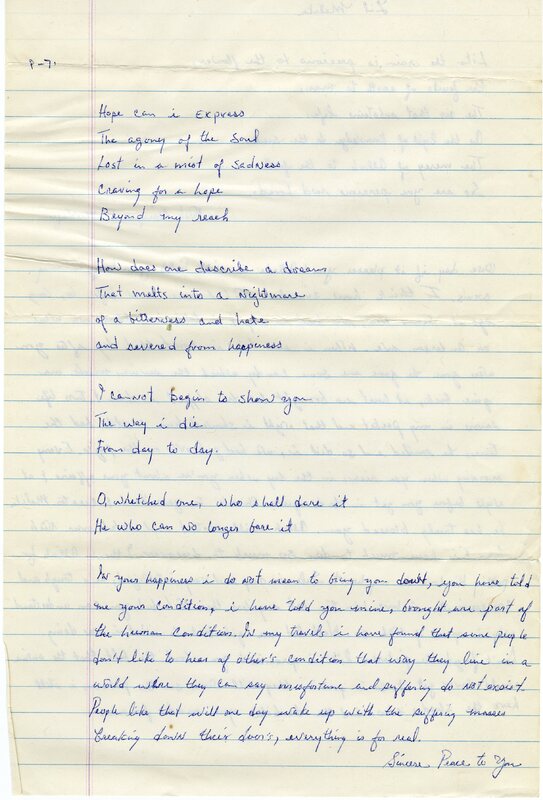 P-7.
Hope can i Express
The agony of the Soul
Lost in a mist of sadness
Craving for a hope
Beyond my reach
How does one describe a dream
That melts into a Nightmare
of a bitterness and hate
and severed from happiness
I cannot begin to show you
The way i die
From day to day.
O, whetched one, who shall dare it
He who can No longer bare it
In your happiness i do not mean to bring you doubt, you have told
me your condition, i have told you mine, are part of
the human condition. In my travels i have found that some people
don't like to hear of other's condition that way they live in a
world where they can say misfortune and suffering do not exsist.
People like that will one day wake up with the suffering masses
breaking down their door's, everything is for real.
Sincere Peace to You